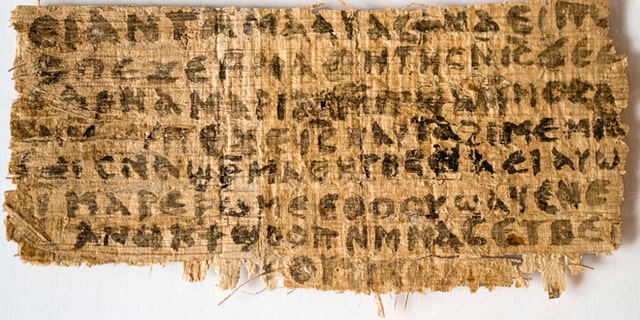 ⲉⲓ ⲁⲛ ⲧⲁⲙⲁⲁⲩ ⲁⲥϯ ⲛⲁⲉⲓ ⲡⲱ
ⲡⲉϫⲉ ⲙⲙⲁⲑⲏⲧⲏⲥ ⲛⲓⲥ ϫⲉ
ⲁⲣⲛⲁ ⲙⲁⲣⲓⲁⲙ ⲙⲡϣⲁ ⲙⲙⲟⲥ ⲁ
ⲡⲉϫⲉ ⲓⲥ ⲛⲁⲩ ⲧⲁϩⲓⲙⲉ ⲙⲛ
ⲥⲛⲁϣⲣⲙⲁⲑⲏⲧⲏⲥ ⲛⲁⲉⲓ ⲁⲩⲱ
ⲙⲁⲣⲉⲣⲱⲙⲉ ⲉⲑⲟⲟⲩ ϣⲁϥⲉ ⲛⲉ
ⲁⲛⲟⲕ ϯϣⲟⲟⲡ ⲛⲙⲙⲁⲥ ⲉⲧⲃⲉ